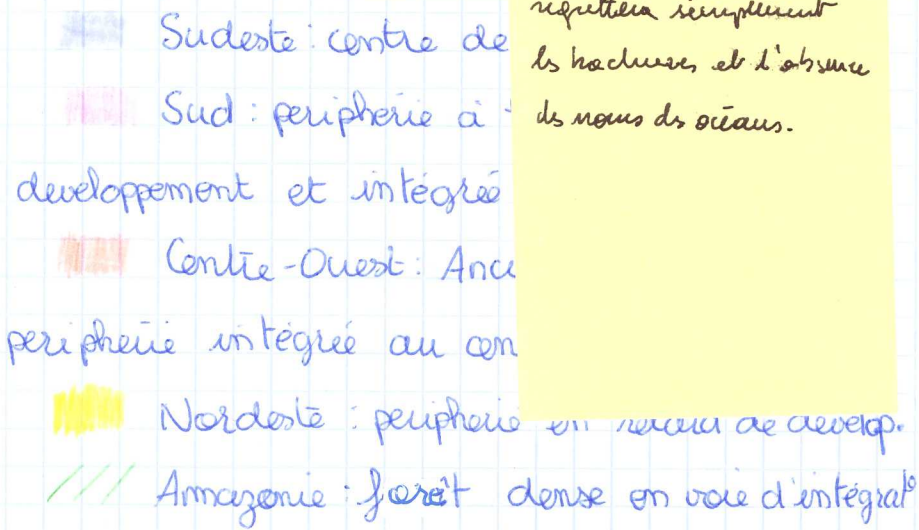 Sudeste : centre de
Sud : peripherie à
developpement et intégrée
Centre-Ouest : Anci
peripherie intégrée au cen
Nordeste : peripherie en retard de develop.
Amazonie : forêt dense en voie d'intégrat°
regrettera simplement
les hachures et l'absence
des noms des océans.